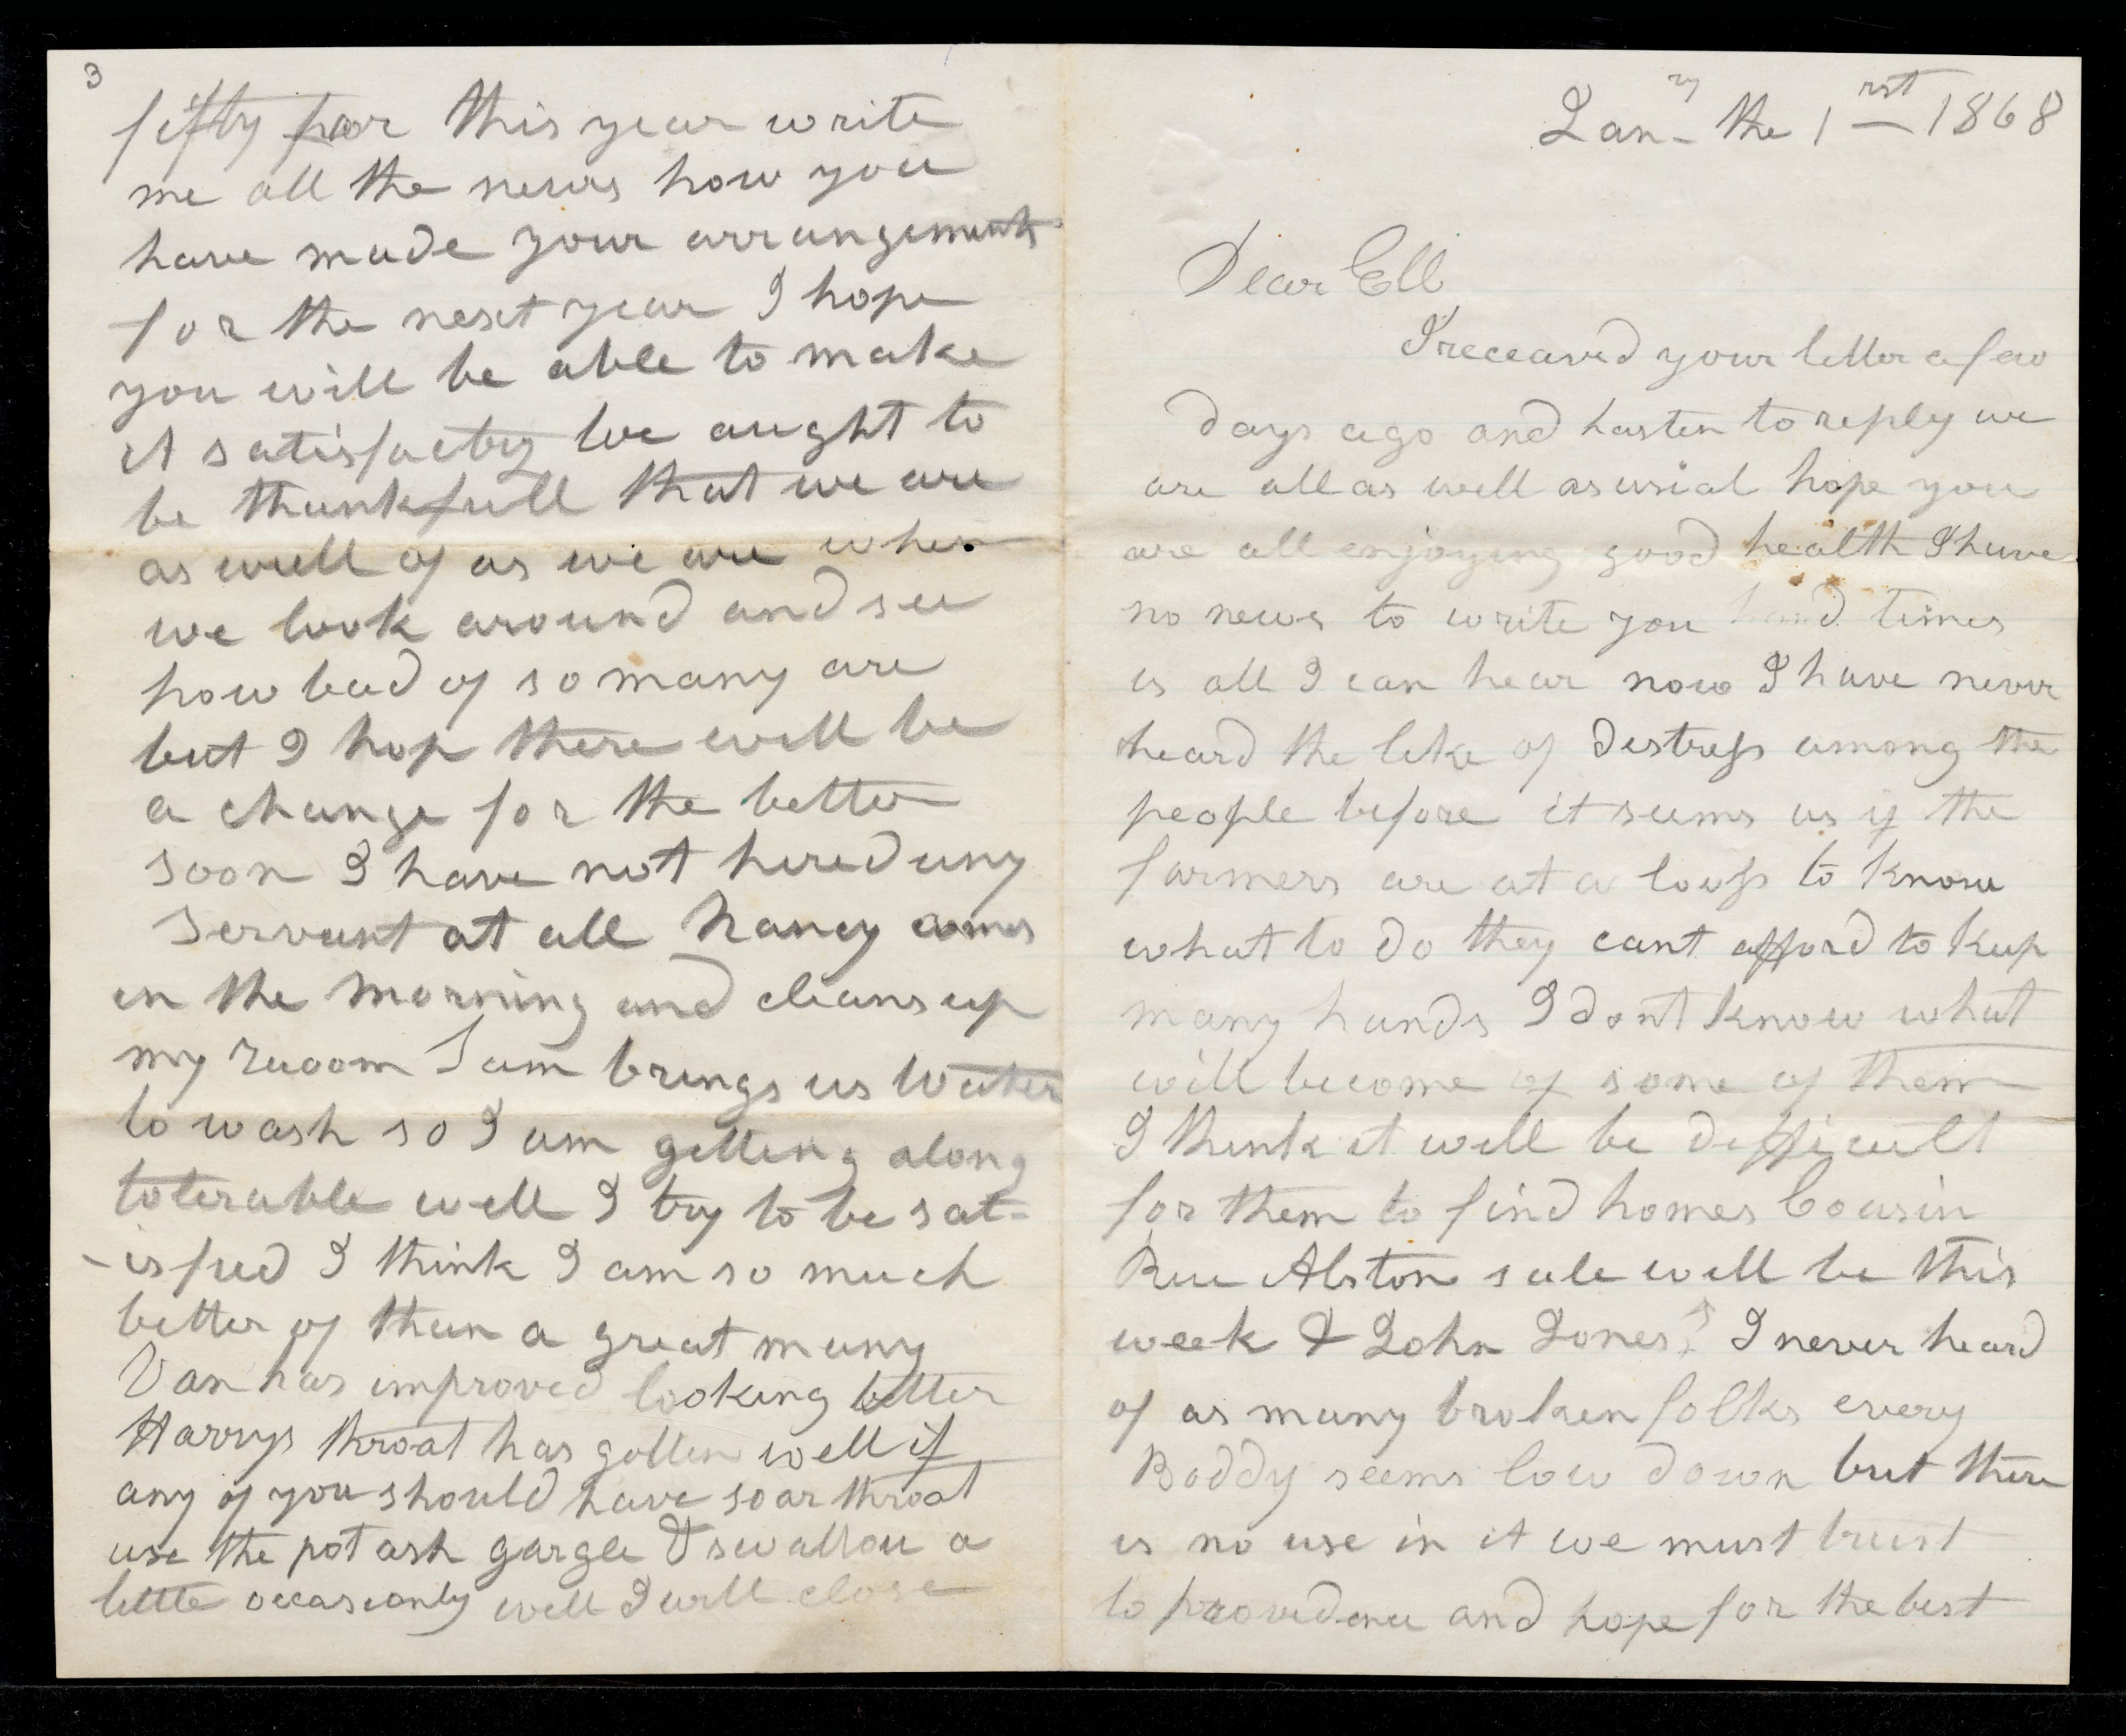 Jan^ry the 1^rst 1868
Dear Ell
I receaved your letter a few
days ago and hasten to reply we
are all as well as usial hope you
are all enjoying good health I have
no news to write you hard times
is all I can hear now I have never
heard the like of distress among the
people before it seems as if the
farmers are at a lowss to know
what to do they cant afford to keep
many hands I dont know what
will become of some of them
I think it will be difficult
for them to find homes Cousin
Alston sale will be this
week & John Jones I never heard
of as many broken folks every
Boddy seems low down but there
is no use in it we must trust
to providence and hope for the best
3
fifty for this year write
me all the news how you
have made your arrangements
for the next year I hope
you will be able to make
it satisfactory we aught to
be thankfull that we are
as well of as we are when
we look around and see
how bad of so many are
but I hop there will be
a change for the better
soon I have not hired any
servant at all Nancy comes
in the morning and cleans up
my ruoom Sam brings us water
to wash so I am getting along
tolerable well I try to be sat-
-isfied I think I am so much
better of than a great many
Van has improved looking better
Harrys throat has gotten well if
any of you should have soar throat
use the potash gargle & swallow a
little occasionly well I will close